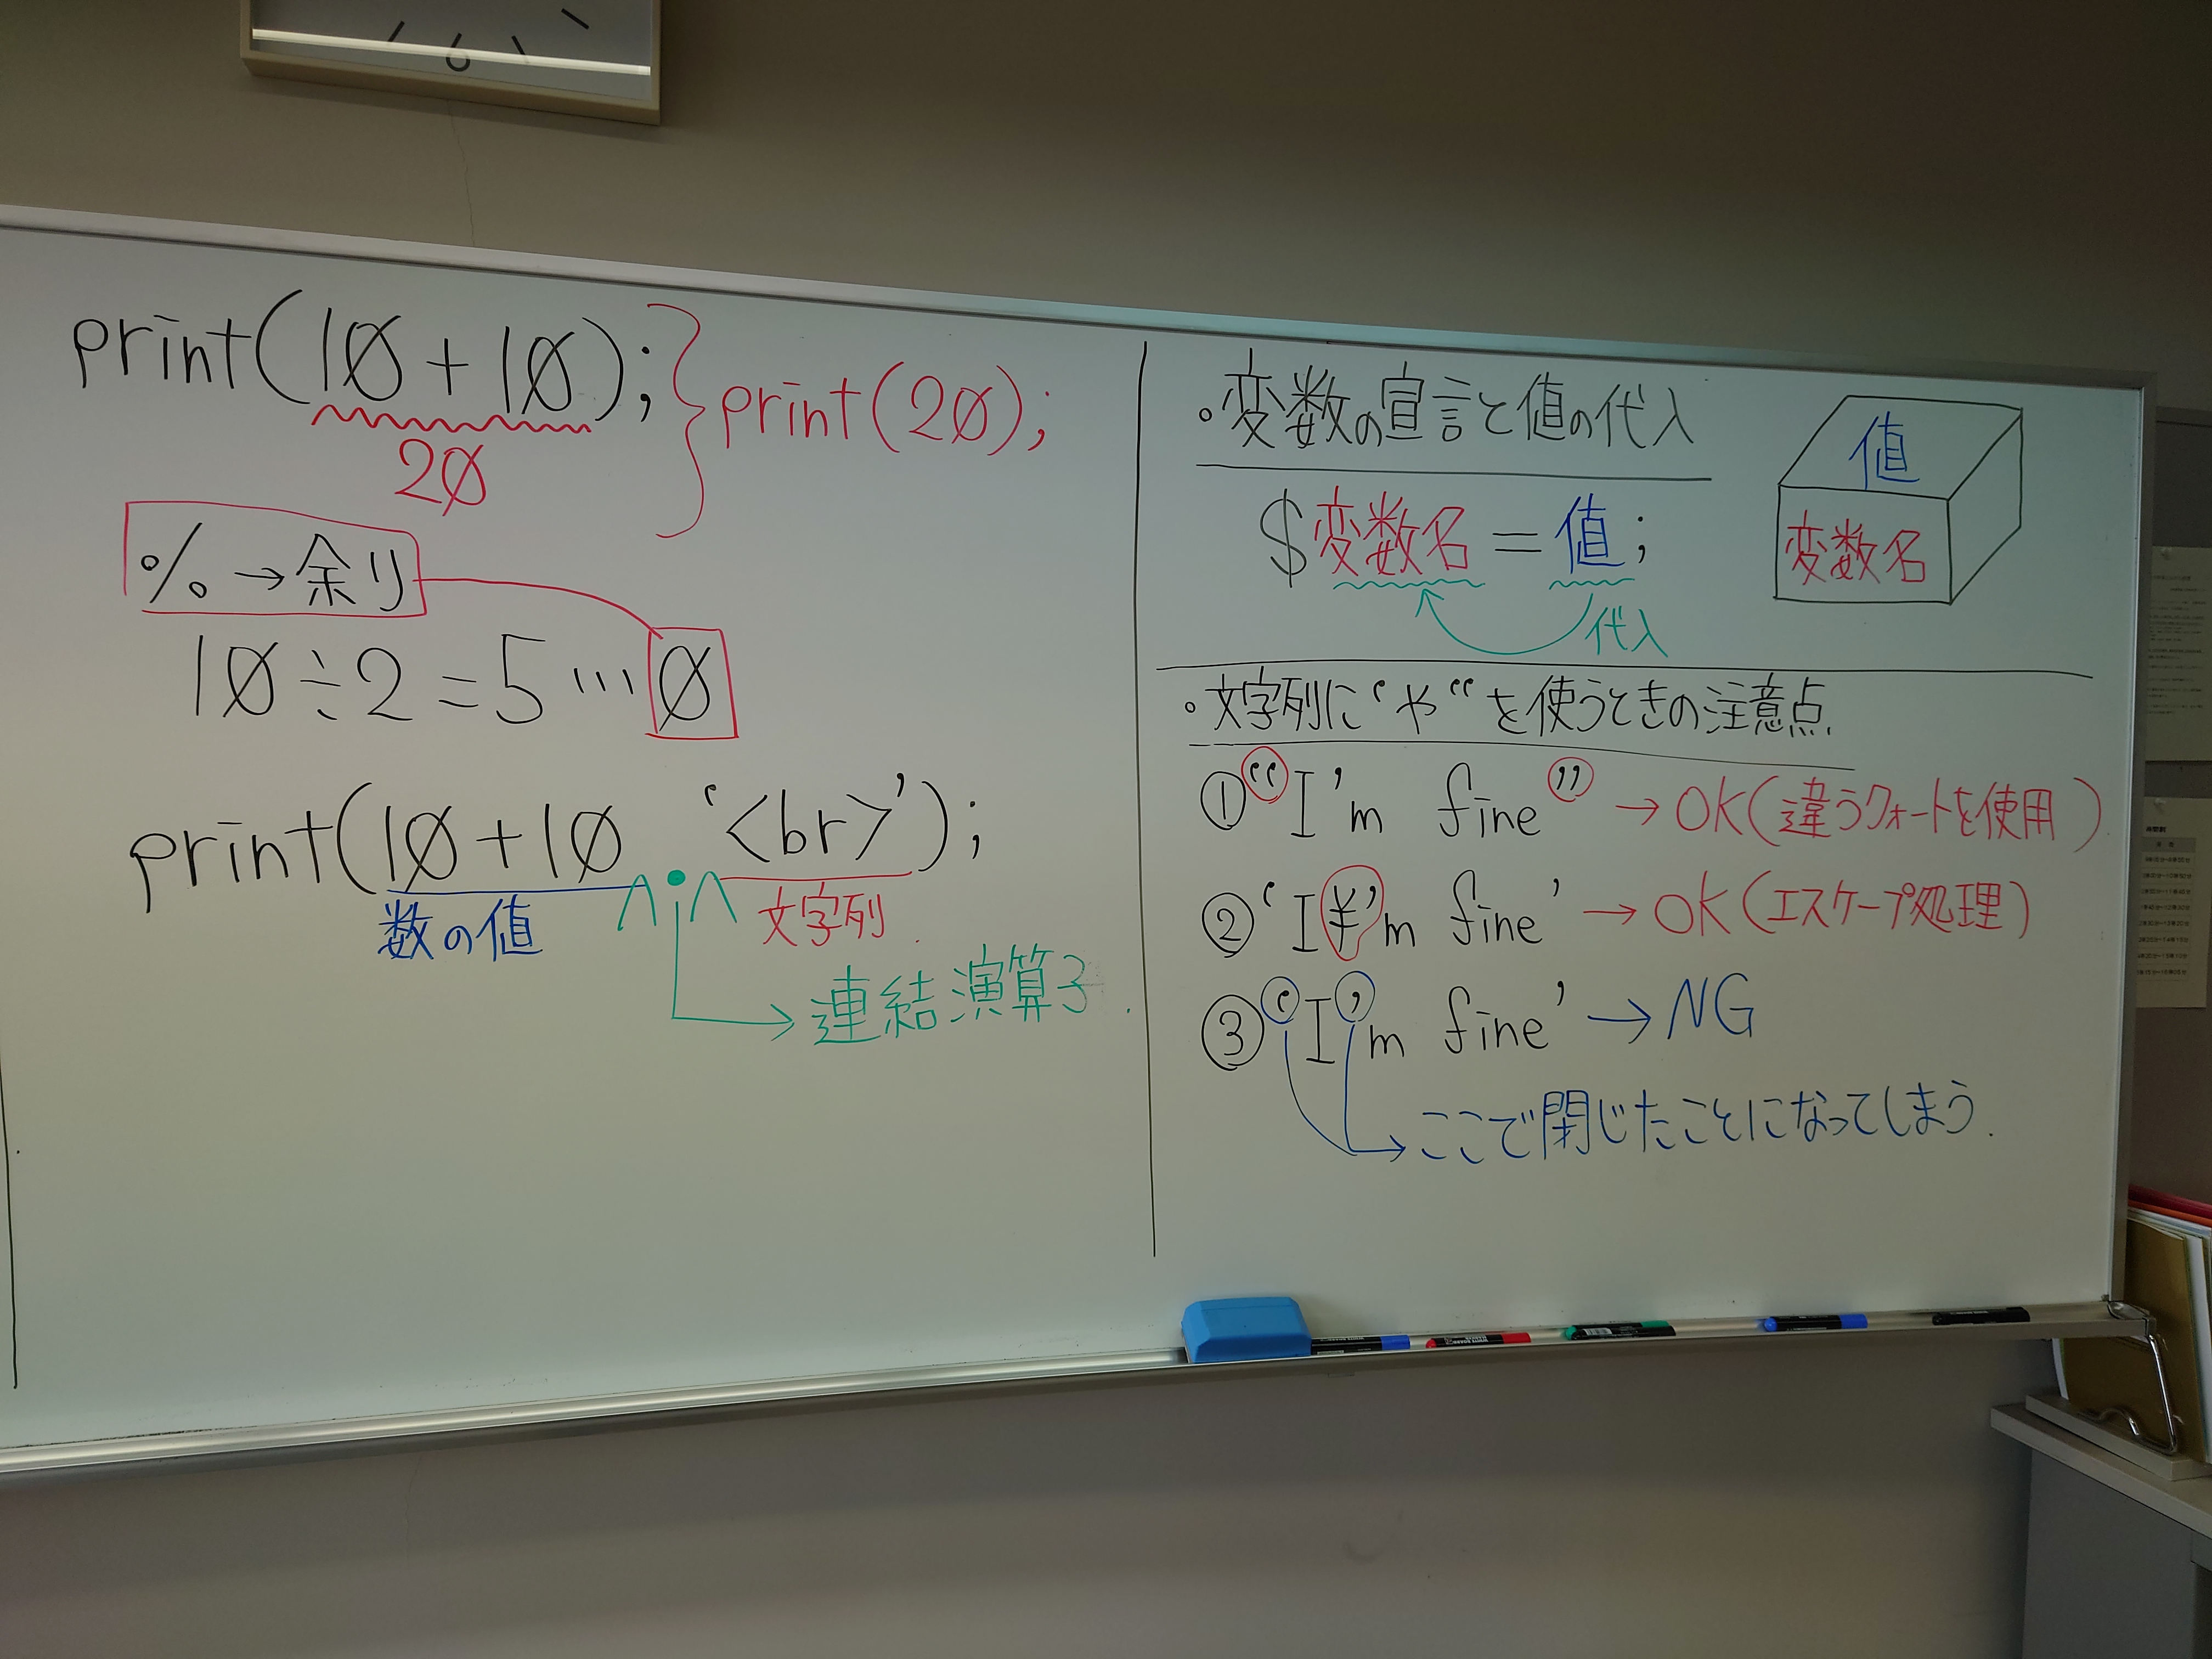 6
print(10+10);
20
print(20);
% → 余り
10÷2=5…0
print(10+10 . '<br>');
数の値
文字列
連結演算子
。変数の宣言と値の代入
$変数名 = 値;
代入
値
変数名
。文字列に‘や“を使うときの注意点
①“I'm fine” → OK(違うクォートを使用)
②‘I¥'m fine' → OK(エスケープ処理)
③‘I'm fine' → NG
ここで閉じたことになってしまう.